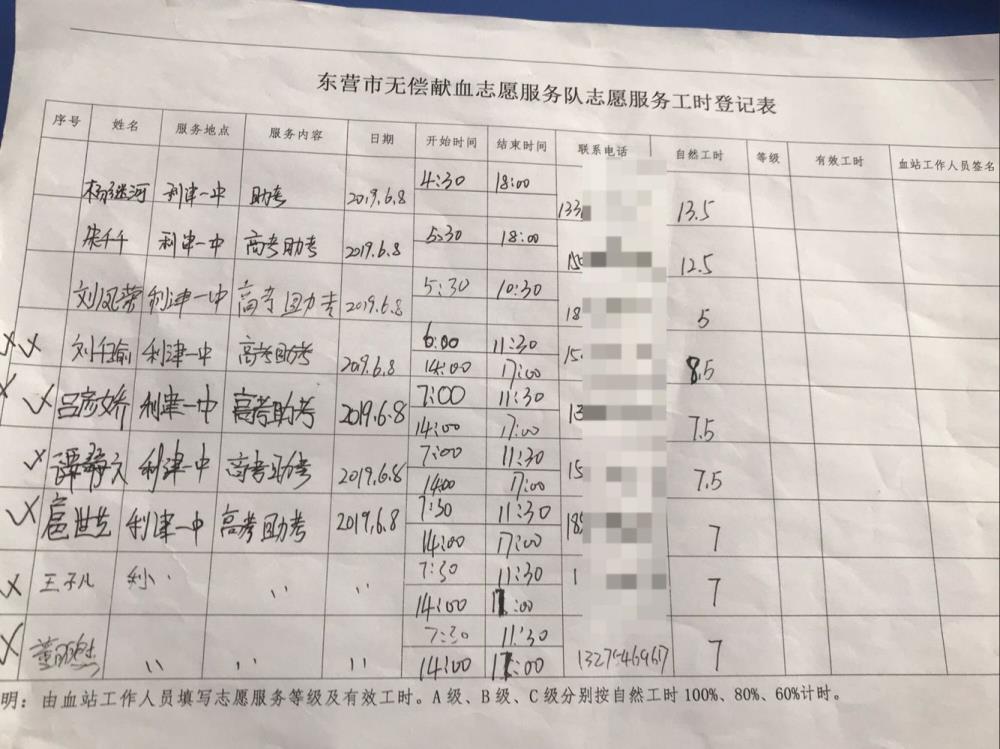 东营市无偿献血志愿服务队志愿服务工时登记表
序号 姓名 服务地点 服务内容 日期 开始时间 结束时间 联系电话 自然工时 等级 有效工时 血站工作人员签名
杨继河 利津一中 助考 2019.6.8 4:30 18:00 133 13.5
利津一中 高考助考 2019.6.8 5:30 18:00 12.5
刘凤荣 利津一中 高考助考 2019.6.8 5:30 10:30 18 5
利津一中 高考助考 2019.6.8 6:00 11:30 15 8.5
14:00 17:00
吕彦娇 利津一中 高考助考 2019.6.8 7:00 11:30 13 7.5
14:00 17:00
利津一中 高考助考 2019.6.8 7:00 11:30 15 7.5
14:00 17:00
扈世芝 利津一中 高考助考 2019.6.8 7:30 11:30 18 7
14:00 17:00
7:30 11:30 1 7
14:00 17:00
7:30 11:30 7
14:00 17:00
明：由血站工作人员填写志愿服务等级及有效工时。A级、B级、C级分别按自然工时100%、80%、60%计时。